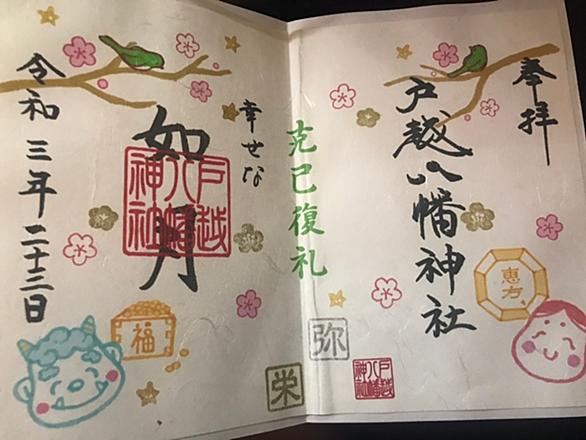 奉拝
戸越八幡神社
恵方
克己復礼
弥
栄
戸越八幡神社
幸せな
如月
戸越八幡神社
福
令和三年二十三日